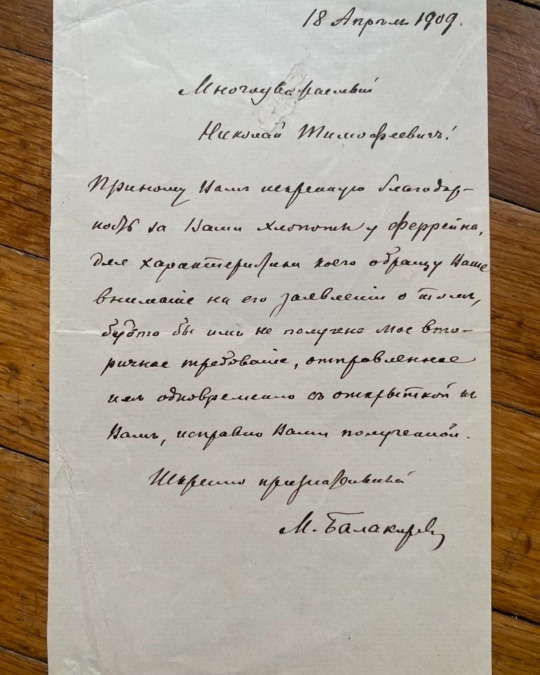 18 Апрѣля 1909.
Многоуважаемый
Николай Тимофеевичъ!
Приношу Вамъ искреннюю благодар-
ность за Ваши хлопоты у Феррейна,
для характеристики коего обращу Ваше
вниманіе на его заявленіе о томъ,
будто бы имъ не получено мое вто-
ричное требованіе, отправленное
одновременно съ открыткой къ
Вамъ, исправно Вами полученной.
Искренно признательный
М. Балакирев